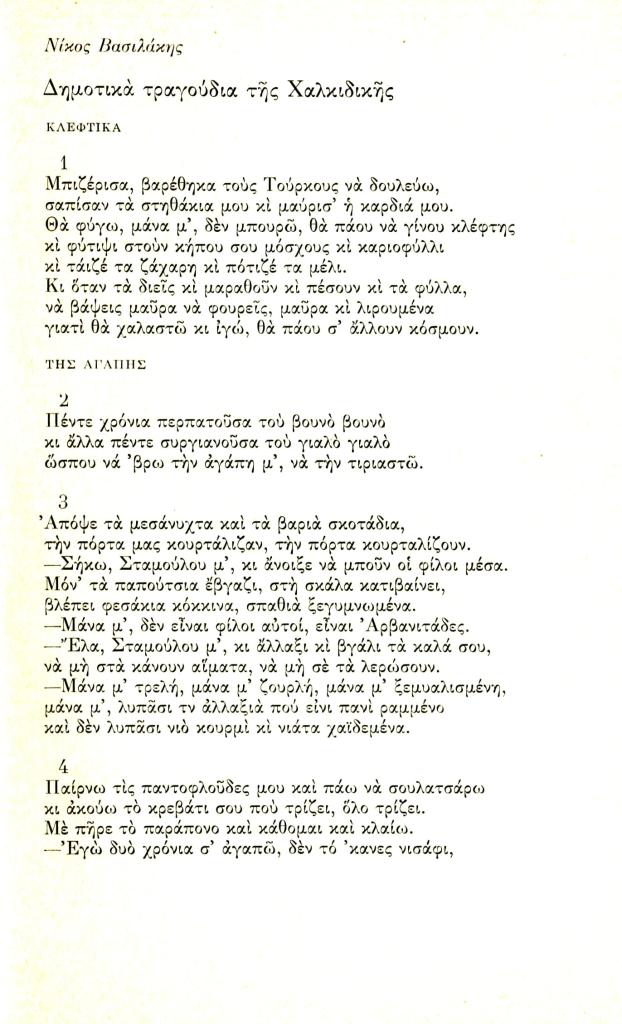 Νίκος Βασιλάκης
Δημοτικὰ τραγούδια τῆς Χαλκιδικῆς
ΚΛΕΦΤΙΚΑ
1
Μπιζέρισα, βαρέθηκα τοὺς Τούρκους νὰ δουλεύω,
σαπίσαν τὰ στηθάκια μου κὶ μαύρισ' ἡ καρδιά μου.
Θὰ φύγω, μάνα μ', δὲν μπουρῶ, θὰ πάου νὰ γίνου κλέφτης
κὶ φύτιψι στοὺν κήπου σου μόσχους κὶ καριοφύλλι
κὶ τάιζέ τα ζάχαρη κὶ πότιζέ τα μέλι.
Κι ὅταν τὰ διεῖς κὶ μαραθοῦν κὶ πέσουν κὶ τὰ φύλλα,
νὰ βάψεις μαῦρα νὰ φουρεῖς, μαῦρα κὶ λιρουμένα
γιατὶ θὰ χαλαστῶ κι ἰγώ, θὰ πάου σ' ἄλλουν κόσμουν.
ΤΗΣ ΑΓΑΠΗΣ
2
Πέντε χρόνια περπατοῦσα τοὺ βουνὸ βουνὸ
κι ἄλλα πέντε συργιανοῦσα τοὺ γιαλὸ γιαλὸ
ὥσπου νά 'βρω τὴν ἀγάπη μ', νὰ τὴν τιριαστῶ.
3
Ἀπόψε τὰ μεσάνυχτα καὶ τὰ βαριὰ σκοτάδια,
τὴν πόρτα μας κουρτάλιζαν, τὴν πόρτα κουρταλίζουν.
—Σήκω, Σταμούλου μ', κι ἄνοιξε νὰ μποῦν οἱ φίλοι μέσα.
Μόν' τὰ παπούτσια ἔβγαζι, στὴ σκάλα κατιβαίνει,
βλέπει φεσάκια κόκκινα, σπαθιὰ ξεγυμνωμένα.
—Μάνα μ', δὲν εἶναι φίλοι αὐτοί, εἶναι Ἀρβανιτάδες.
—Ἔλα, Σταμούλου μ', κι ἄλλαξι κὶ βγάλι τὰ καλά σου,
νὰ μὴ στὰ κάνουν αἵματα, νὰ μὴ σὲ τὰ λερώσουν.
—Μάνα μ' τρελή, μάνα μ' ζουρλή, μάνα μ' ξεμυαλισμένη,
μάνα μ', λυπᾶσι τν ἀλλαξιὰ πού εἰνι πανὶ ραμμένο
καὶ δὲν λυπᾶσι νιὸ κουρμὶ κὶ νιάτα χαϊδεμένα.
4
Παίρνω τὶς παντοφλοῦδες μου καὶ πάω νὰ σουλατσάρω
κι ἀκούω τὸ κρεβάτι σου ποὺ τρίζει, ὅλο τρίζει.
Μὲ πῆρε τὸ παράπονο καὶ κάθομαι καὶ κλαίω.
—Ἐγὼ δυὸ χρόνια σ' ἀγαπῶ, δὲν τό 'κανες νισάφι,